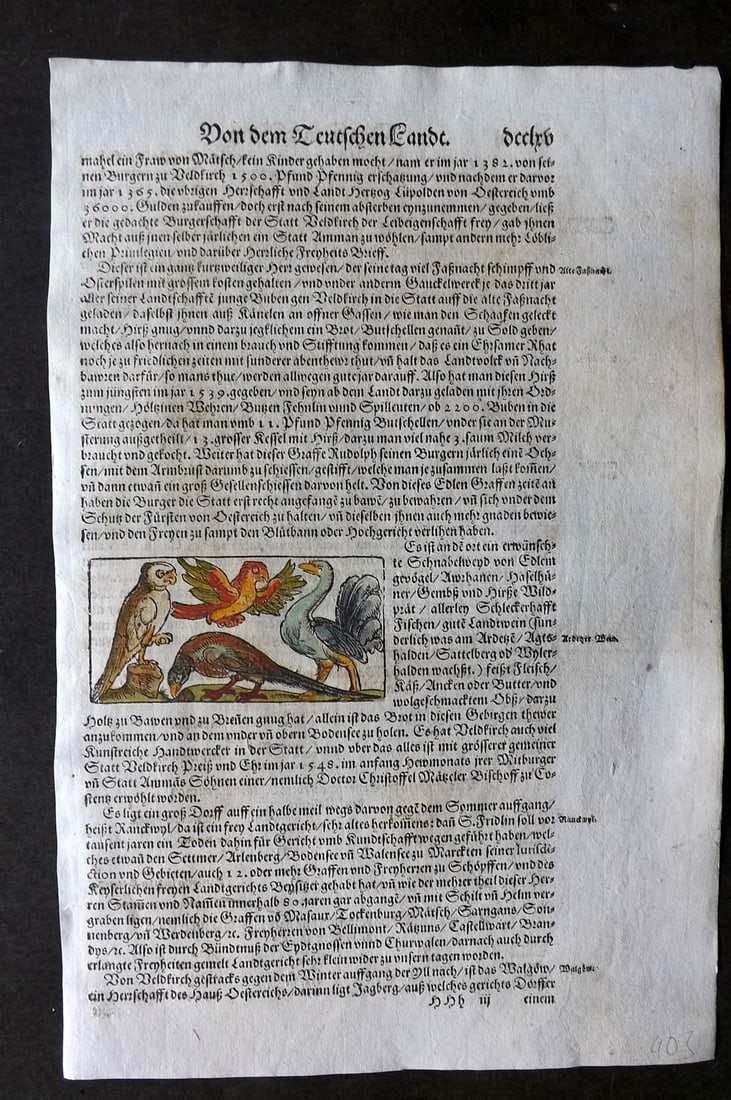 Von dem Teutschen Landt. dcclxv
mahel ein Fraw von Mätsch/kein Kinder gehaben mocht/nam er im jar 1382. von sei-
nen Burgern zu Veldkirch 1500. Pfund Pfennig erschatzung/vnd nachdem er darvor
im jar 1365. die vbrigen Herrschafft vnd Landt Hertzog Lüpolden von Oestereich vmb
36000. Gulden zukauffen/doch erst nach seinem absterben eynzunemmen/gegeben/ließ
er die gedachte Burgerschafft der Statt Veldkirch der Leibeigenschafft frey/gab jhnen
Macht auß jnen selber järlichen ein Statt Amman zu wöhlen/sampt andern mehr Löbli-
chen Priuilegien/vnd darüber Herrliche Freyheits Brieff.
Dieser ist ein gantz kurtzweiliger Herr gewesen/der seine tag viel Faßnacht schimpff vnd
Alte Faßnacht.
Osterspilen mit grossem kosten gehalten/vnd vnder anderm Gauckelwerck je das dritt jar
aller seiner Landtschafftē junge Buben gen Veldkirch in die Statt auff die alte Faßnacht
geladen/daselbst jhnen auß Känelen an offner Gassen/wie man den Schaafen geleckt
macht/Hirß gnug/vnnd darzu jegklichem ein Brot/Butschellen genañt/zu Sold geben/
welches also hernach in einem brauch vnd Stifftung kommen/daß es ein Ehrsamer Rhat
noch je zu friedlichen zeiten mit sunderer abenthewr thut/vñ halt das Landtvolck vñ Nach-
bawren darfür/so mans thue/werden allwegen gute jar darauff. Also hat man diesen Hirß
zum jüngsten im jar 1539. gegeben/vnd seyn ab dem Landt darzu geladen mit jhren Ord-
nungen/Höltzinen Wehren/Butzen Fehnlin vnnd Spilleuten/ob 2200. Buben in die
Statt gezogen/da hat man vmb 11. Pfund Pfennig Butschellen/vnder sie an der Mu-
sterung außgetheilt/13. grosser Kessel mit Hirß/darzu man viel nahe 3. saum Milch ver-
braucht vnd gekocht. Weiter hat dieser Graffe Rudolph seinen Burgern järlich einē Och-
sen/mit dem Armbrust darumb zu schiessen/gestifft/welche man je zusammen laßt koñen/
vñ dann etwañ ein groß Gesellenschiessen darvon helt. Von dieses Edlen Graffen zeitē an
haben die Burger die Statt erst recht angefangē zu bawē/zu bewahren/vñ sich vnder dem
Schutz der Fürsten von Oestereich zu halten/vñ dieselben jhnen auch mehr gnaden bewie-
sen/vnd den Freyen zu sampt den Blütbann oder Hochgericht verlihen haben.
Es ist an dē ort ein erwünsch-
te Schnabelweyd von Edlem
gevögel/Awrhanen/Haselhü-
ner/Gembß vnd Hirße Wild-
prät/allerley Schleckerhafft
Fischen/gutē Landtwein (sun-
derlich was am Ardetzē/Agts-
Ardetzer Wein.
halden/Sattelberg od Wyler-
halden wachßt.) feißt Fleisch/
Käß/Ancken oder Butter/vnd
wolgeschmacktem Obß/darzu
Holtz zu Bawen vnd zu Breñen gnug hat/allein ist das Brot in diesen Gebirgen thewer
anzukommen/vnd an dem vnder vñ obern Bodensee zu holen. Es hat Veldkirch auch viel
Kunstreiche Handtwercker in der Statt/vnnd vber das alles ist mit grösserer gemeiner
Statt Veldkirch Preiß vnd Ehr im jar 1548. im anfang Hewmonats jrer Mitburger
vñ Statt Ammās Söhnen einer/nemlich Doctor Christoffel Mätzeler Bischoff zu Co-
stentz erwöhlt worden.
Es ligt ein groß Dorff auff ein halbe meil wegs darvon gegē dem Sommer auffgang/
heißt Ranckwyl/da ist ein frey Landtgericht/sehr altes herkomens: dañ S. Fridlin soll vor
Ranckwyl.
tausent jaren ein Toden dahin für Gericht vmb Kundtschafft wegen geführt haben/wel-
ches etwañ den Settmer/Arlenberg/Bodensee vñ Walensee zu Marckten seiner Iurisdi-
ction vnd Gebieten/auch 12. oder mehr Graffen vnd Freyherren zu Schöpffen/vnd des
Keyserlichen freyen Landtgerichts Beysitzer gehabt hat/vñ wie der mehrer theil dieser Her-
ren Stañen vnd Nañen innerhalb 80. jaren gar abgangē/vñ mit Schilt vñ Helm ver-
graben ligen/nemlich die Graffen vō Masaux/Tockenburg/Mätsch/Sarngans/Son-
nenberg/vñ Werdenberg/rc. Freyherren von Bellimont/Rätzuns/Castellwart/Bran-
dys/rc. Also ist durch Bündtnuß der Eydtgnossen vnnd Churwalen/darnach auch durch
erlangte Freyheiten gemelt Landtgericht sehr klein wider zu vnsern tagen worden.
Von Veldkirch gestracks gegen dem Winter auffgang der Yll nach/ist das Walgöw/
Walgöw.
ein Herrschafft des Hauß Oestereichs/darinn ligt Jagberg/auß welches gerichts Dörffer
HHh iij einem
403